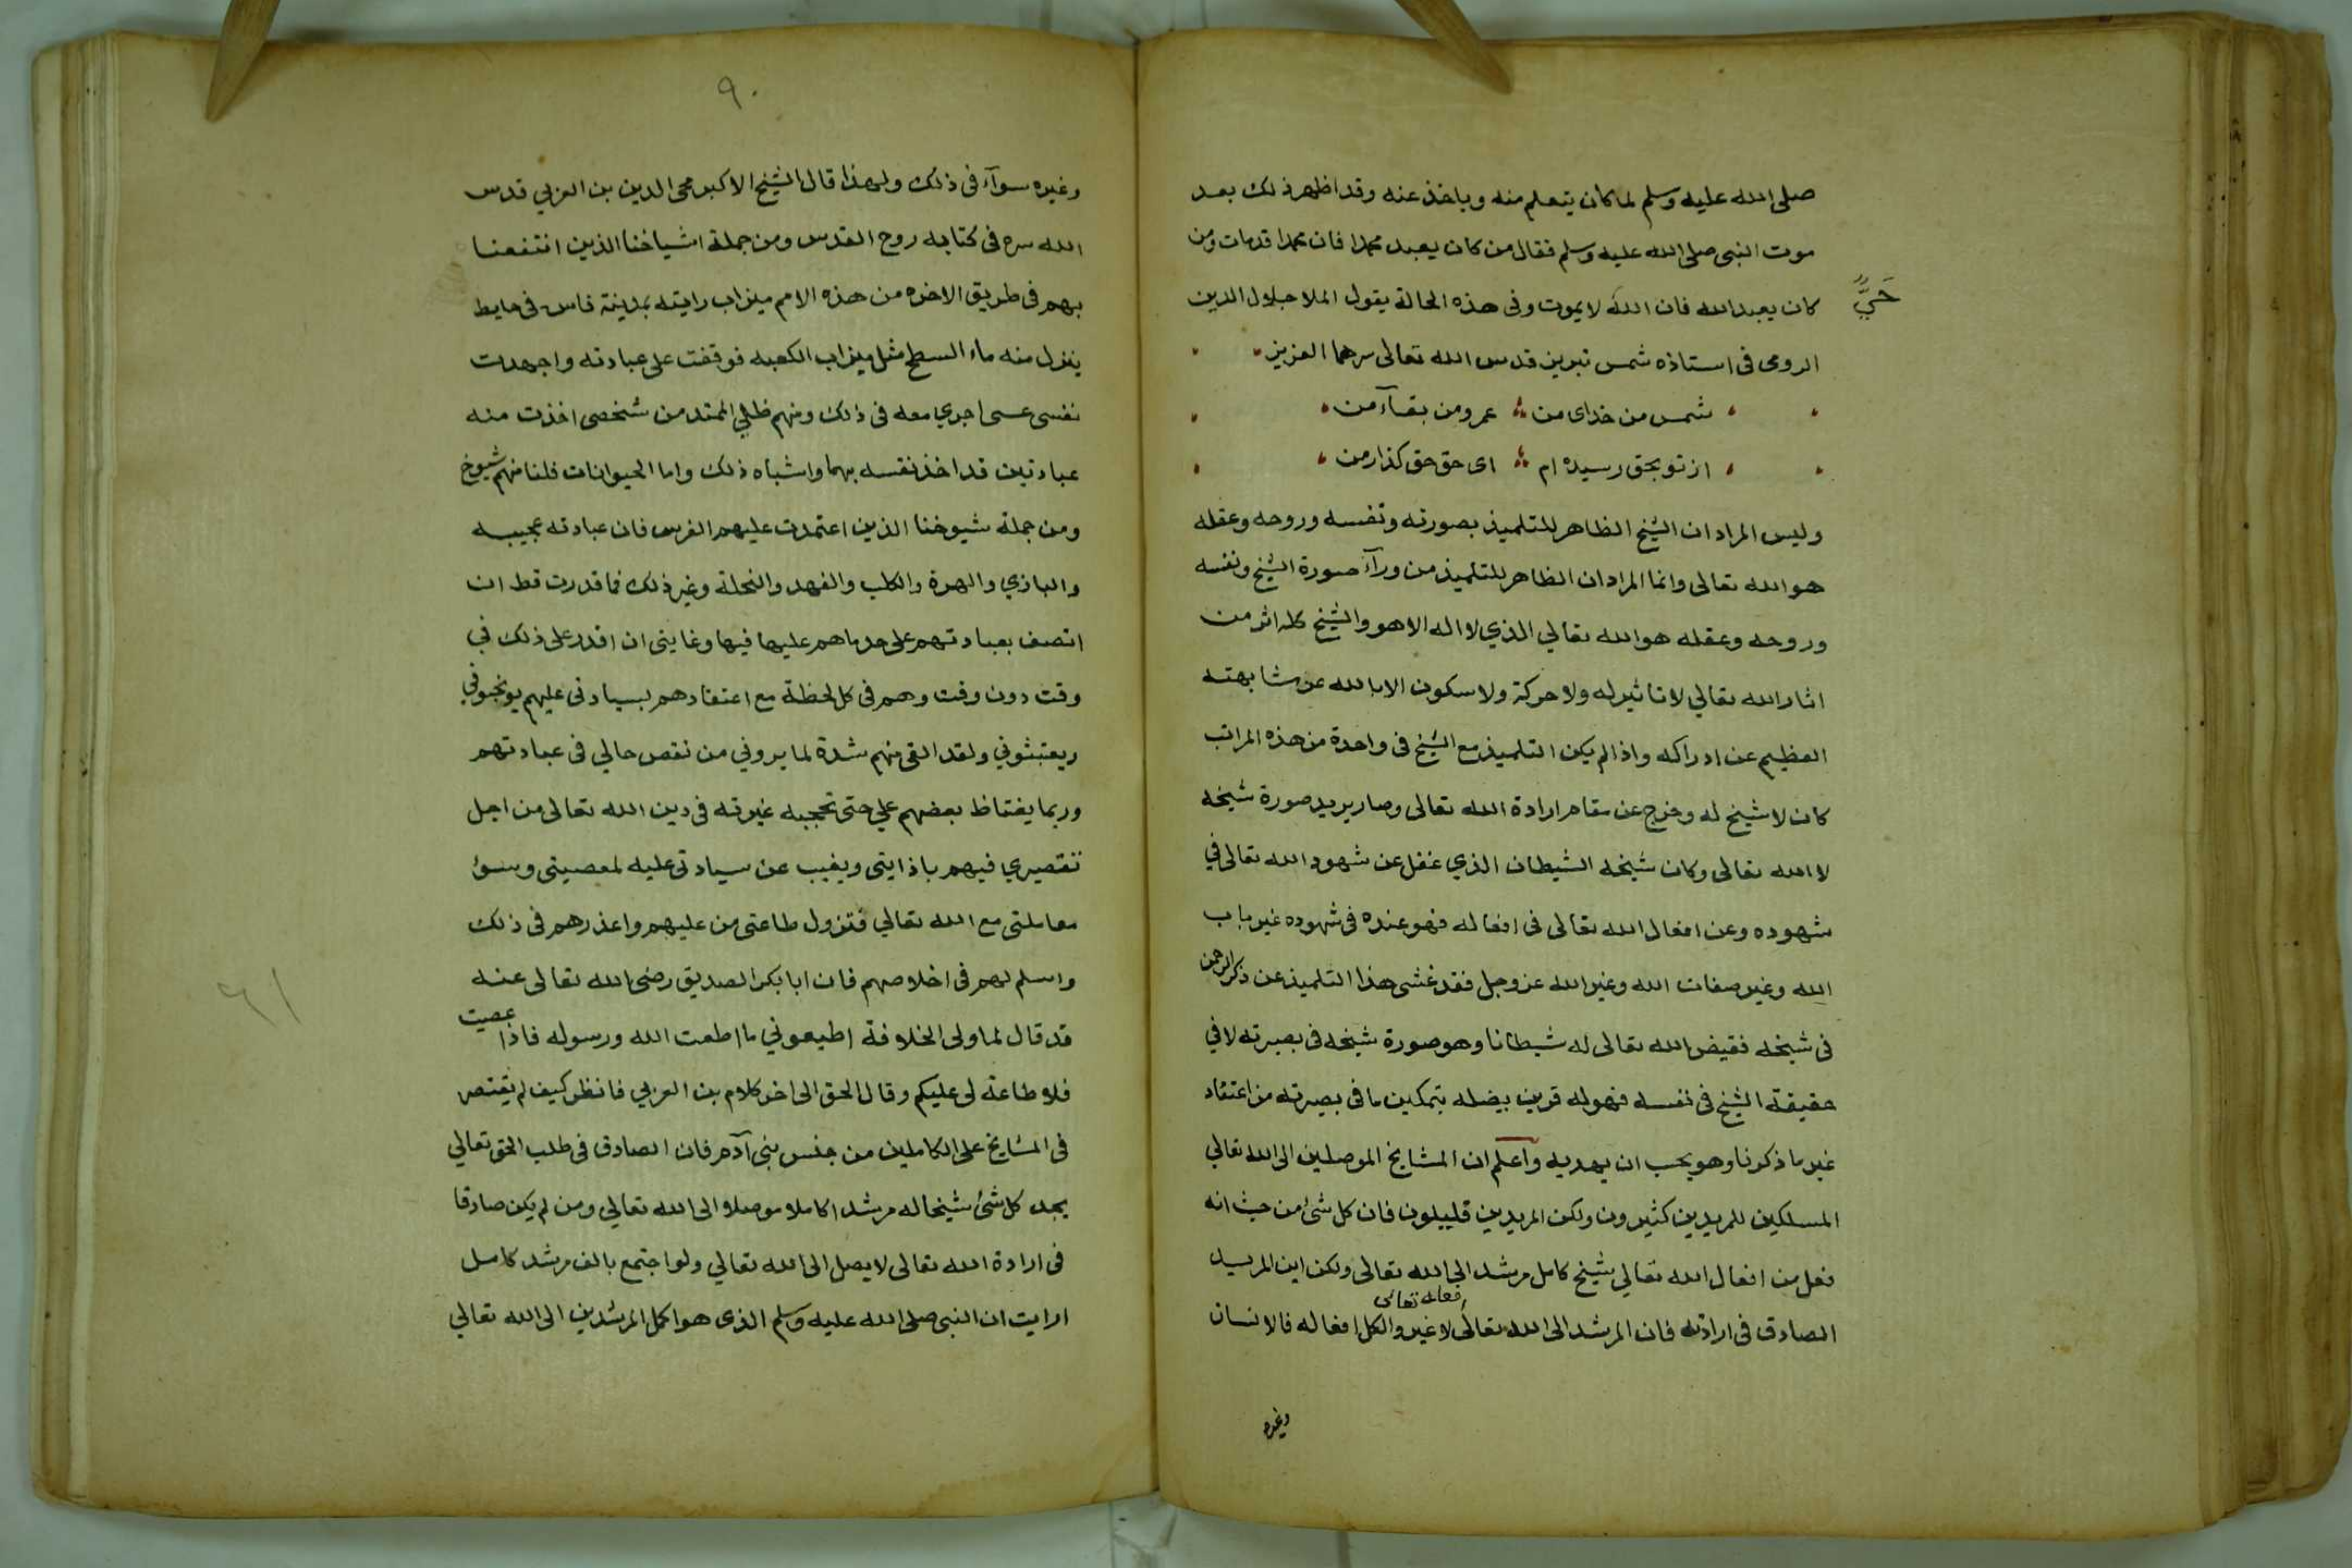 صلى الله عليه وسلم لما كان يتعلم منه وياخذ عنه وقد اظهر ذلك بعد
موت النبي صلى الله عليه وسلم فقال من كان يعبد محمدا فان محمدا قد مات ومن
كان يعبد الله فان الله لا يموت وفى هذه الحالة يقول الملا جلال الدين
حَيٌّ
الرومى فى استاذه شمس تبريز قدس الله تعالى سرهما العزيز
شمس من خداى من عمر ومن بقاء من
از تو بحق رسيده ام اى حق حق كذار من
وليس المراد ان الشيخ الظاهر للتلميذ بصورته ونفسه وروحه وعقله
هو الله تعالى وانما المراد ان الظاهر للتلميذ من ورآء صورة الشيخ ونفسه
وروحه وعقله هو الله تعالي الذي لا اله الا هو والشيخ كله اثر من
اثار الله تعالي لا تاثير له ولا حركة ولا سكون الا بالله عن مشابهته
العظيم عن ادراكه واذا لم يكن التلميذ مع الشيخ فى واحدة من هذه المراتب
كان لا شيخ له وخرج عن مقام ارادة الله تعالى وصار يريد صورة شيخه
لا الله تعالى وكان شيخه الشيطان الذي غفل عن شهود الله تعالى في
شهوده وعن افعال الله تعالى فى افعاله فهو عنده فى شهوده غير باب
الله وغير صفات الله وغير الله عز وجل فقد غشى هذا التلميذ عن ذكر الرحمن
فى شيخه فقيض الله تعالى له شيطانا وهو صورة شيخه فى بصيرته لا في
حقيقة الشيخ فى نفسه فهو له قرين يضله بتمكين ما فى بصيرته من اعتقاد
غير ما ذكرنا وهو يحسب ان يهديه واعلم ان المشايخ الموصلين الى الله تعالي
المسلكين للمريدين كثيرون ولكن المريدين قليلون فان كل شئ من حيث انه
فعل من افعال الله تعالي شيخ كامل مرشد الى الله تعالى ولكن اين المريد
افعاله تعالى
الصادق فى ارادته فان المرشد الى الله تعالى لا غير والكل افعاله فالانسان
وغيره
٩٠
وغيره سوآء فى ذلك ولهذا قال الشيخ الاكبر محى الدين بن العربي قدس
الله سره فى كتابه روح القدس ومن جملة اشياخنا الذين انتفعنا
بهم فى طريق الاخره من هذه الامم ميزاب رايته بمدينة فاس فى حايط
ينزل منه ماء السطح مثل ميزاب الكعبه فوقفت على عبادته واجهدت
نفسى عسى اجري معه فى ذلك ومنهم ظلي الممتد من شخصى اخذت منه
عبادتين قد اخذ نفسه بهما واشباه ذلك واما الحيوانات فلنا منهم شيوخ
ومن جملة شيوخنا الذين اعتمدت عليهم الفرس فان عبادته عجيبه
والبازي والهرة والكلب والفهد والنحلة وغير ذلك فما قدرت قط ان
اتصف بعبادتهم على حد ما هم عليها فيها وغايتى ان اقدر على ذلك في
وقت دون وقت وهم فى كل لحظة مع اعتقادهم بسيادتى عليهم يوبخوني
ويعتبثوني ولقد القى منهم شدة لما يروني من نقص حالي فى عبادتهم
وربما يغتاظ بعضهم علي حتى تحجبه غيرته فى دين الله تعالى من اجل
تقصيري فيهم باذايتى ويغيب عن سيادتى عليه لمعصيتى وسوء
معاملتى مع الله تعالي فتزول طاعتى من عليهم واعذرهم فى ذلك
واسلم لهم فى اخلاصهم فان ابا بكر الصديق رضى الله تعالى عنه
قد قال لما ولى الخلافة اطيعوني ما اطعت الله ورسوله فاذا عصيت
فلا طاعة لى عليكم وقال الحق الى اخر كلام بن العربي فانظر كيف لم يقتصر
فى المشايخ على الكاملين من جنس بنى آدم فان الصادق فى طلب الحق تعالي
يجد كل شئ شيخا له مرشدا كاملا موصلا الى الله تعالي ومن لم يكن صادقا
فى ارادة الله تعالى لا يصل الى الله تعالي ولو اجتمع بالف مرشد كامل
ارايت ان النبي صلى الله عليه وسلم الذى هو اكمل المرشدين الى الله تعالي